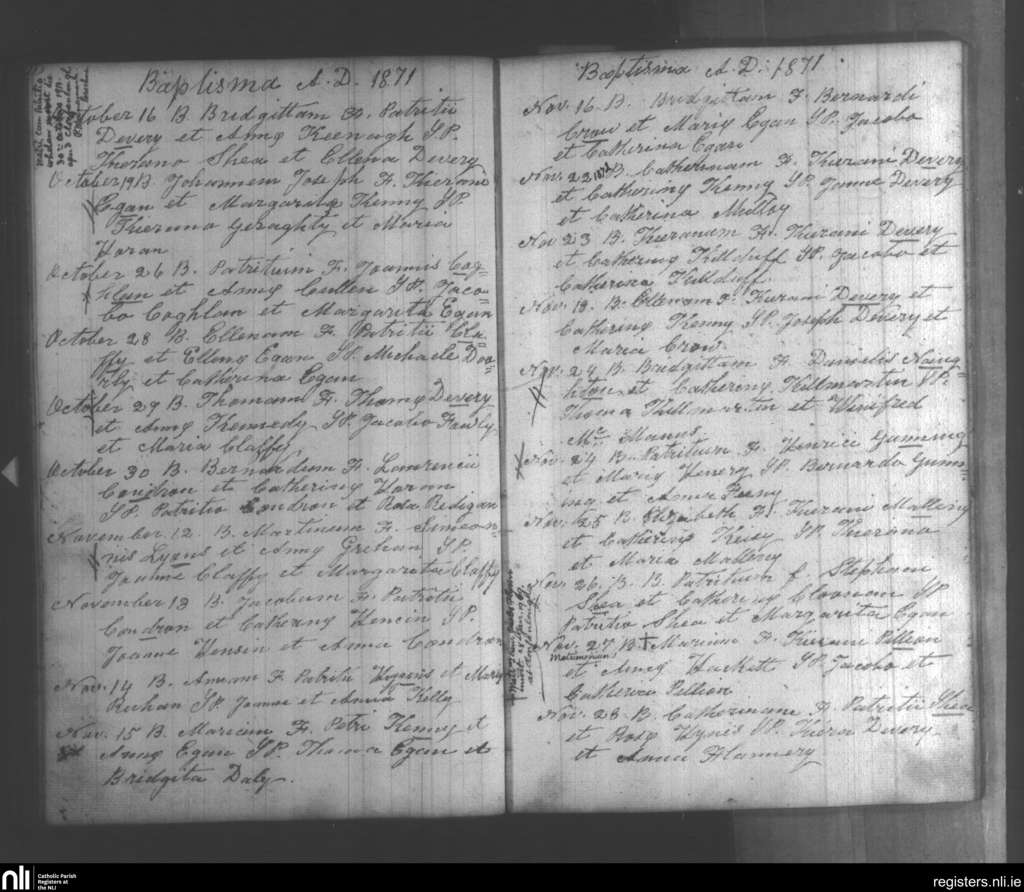 Baptisma A.D. 1871
October 16 B. Bridgittam F. Patritii
Devery et Annæ Keenagh SP.
Kierano Shea et Ellena Devery
October 19 B. Johannem Joseph F. Kierani
Egan et Margaritæ Kenny SP
Kierano Geraghty et Maria
Horan
October 26 B. Patritium F. Joannis Cog=
hlan et Annæ Cullen SP. Jaco=
bo Coghlan et Margarita Egan
October 28 B. Ellenam F. Patritii Cla=
ffy et Ellenæ Egan SP. Michaele Doo=
rly et Catherina Egan
October 29 B. Thomam F. Thomæ Devery
et Annæ Kennedy SP. Jacobo
et Maria Claffy
October 30 B. Bernardum F. Lawrencii
Condron et Catherinæ Horan
SP. Patritio Condron et Rosa Redigan
November 12 B. Martinum F. Simeon=
nis Lyons et Annæ Grehan SP.
Joanne Claffy et Margarita Claffy
November 13 B. Jacobum F. Patritii
Condron et Catherinæ Hencin SP.
Joanne Hensen et Anna Condron
Nov. 14 B. Annam F. Patritii Hynens et Mariæ
SP. Joanne et Anna Kelly
Nov. 15 B. Mariam F. Petri Kenny et
Annæ Egan SP. Thoma Egan et
Bridgita Daly.
Baptisma A.D. 1871
Nov. 16. B. Bridgittam F. Bernardi
Crow et Mariæ Egan SP. Jacobo
et Catherina Egan
Nov. 22 B. Catherinam F. Kierani Devery
et Catherinæ Kenny SP Joanne Devery
et Catherina Mulloy
Nov 23 B. Kieranum F. Kierani Devery
et Catherinæ Killduff SP. Jacobo et
Catherina Killduff
Nov. 19. B. Ellenam F. Kierani Devery et
Catherinæ Kenny SP. Joseph Devery et
Maria Crow
Nov. 24 B. Bridgittam F. Danielis Naug=
hton et Catherinæ Killmartin SP.
Thoma Killmartin et Winifred
Mc Manus
Nov. 24 B. Patritium F. Henrici Gunning
et Mariæ Henery SP. Bernardo Gunn=
ing et Anna Feeny
Nov. 25 B. Elizabeth F. Kierani Malleny
et Catherinæ SP. Kierano
et Maria Malleny
Nov. 26. B. Patritium f Stephani
Shea et Catherinæ Cloonan SP
Patritio Shea et Margarita Egan
Nov. 27 B. Mariam F. Kierani Pillion
Matrimonium
et Annæ Hackett SP. Jacobo et
Catherina Pillion
Nov. 28. B. Catherinam F. Patritii Shea
et Rosæ Hynes SP. Kiera Devery
et Anna Flannery
nli
Catholic Parish
Registers at
the NLI
registers.nli.ie